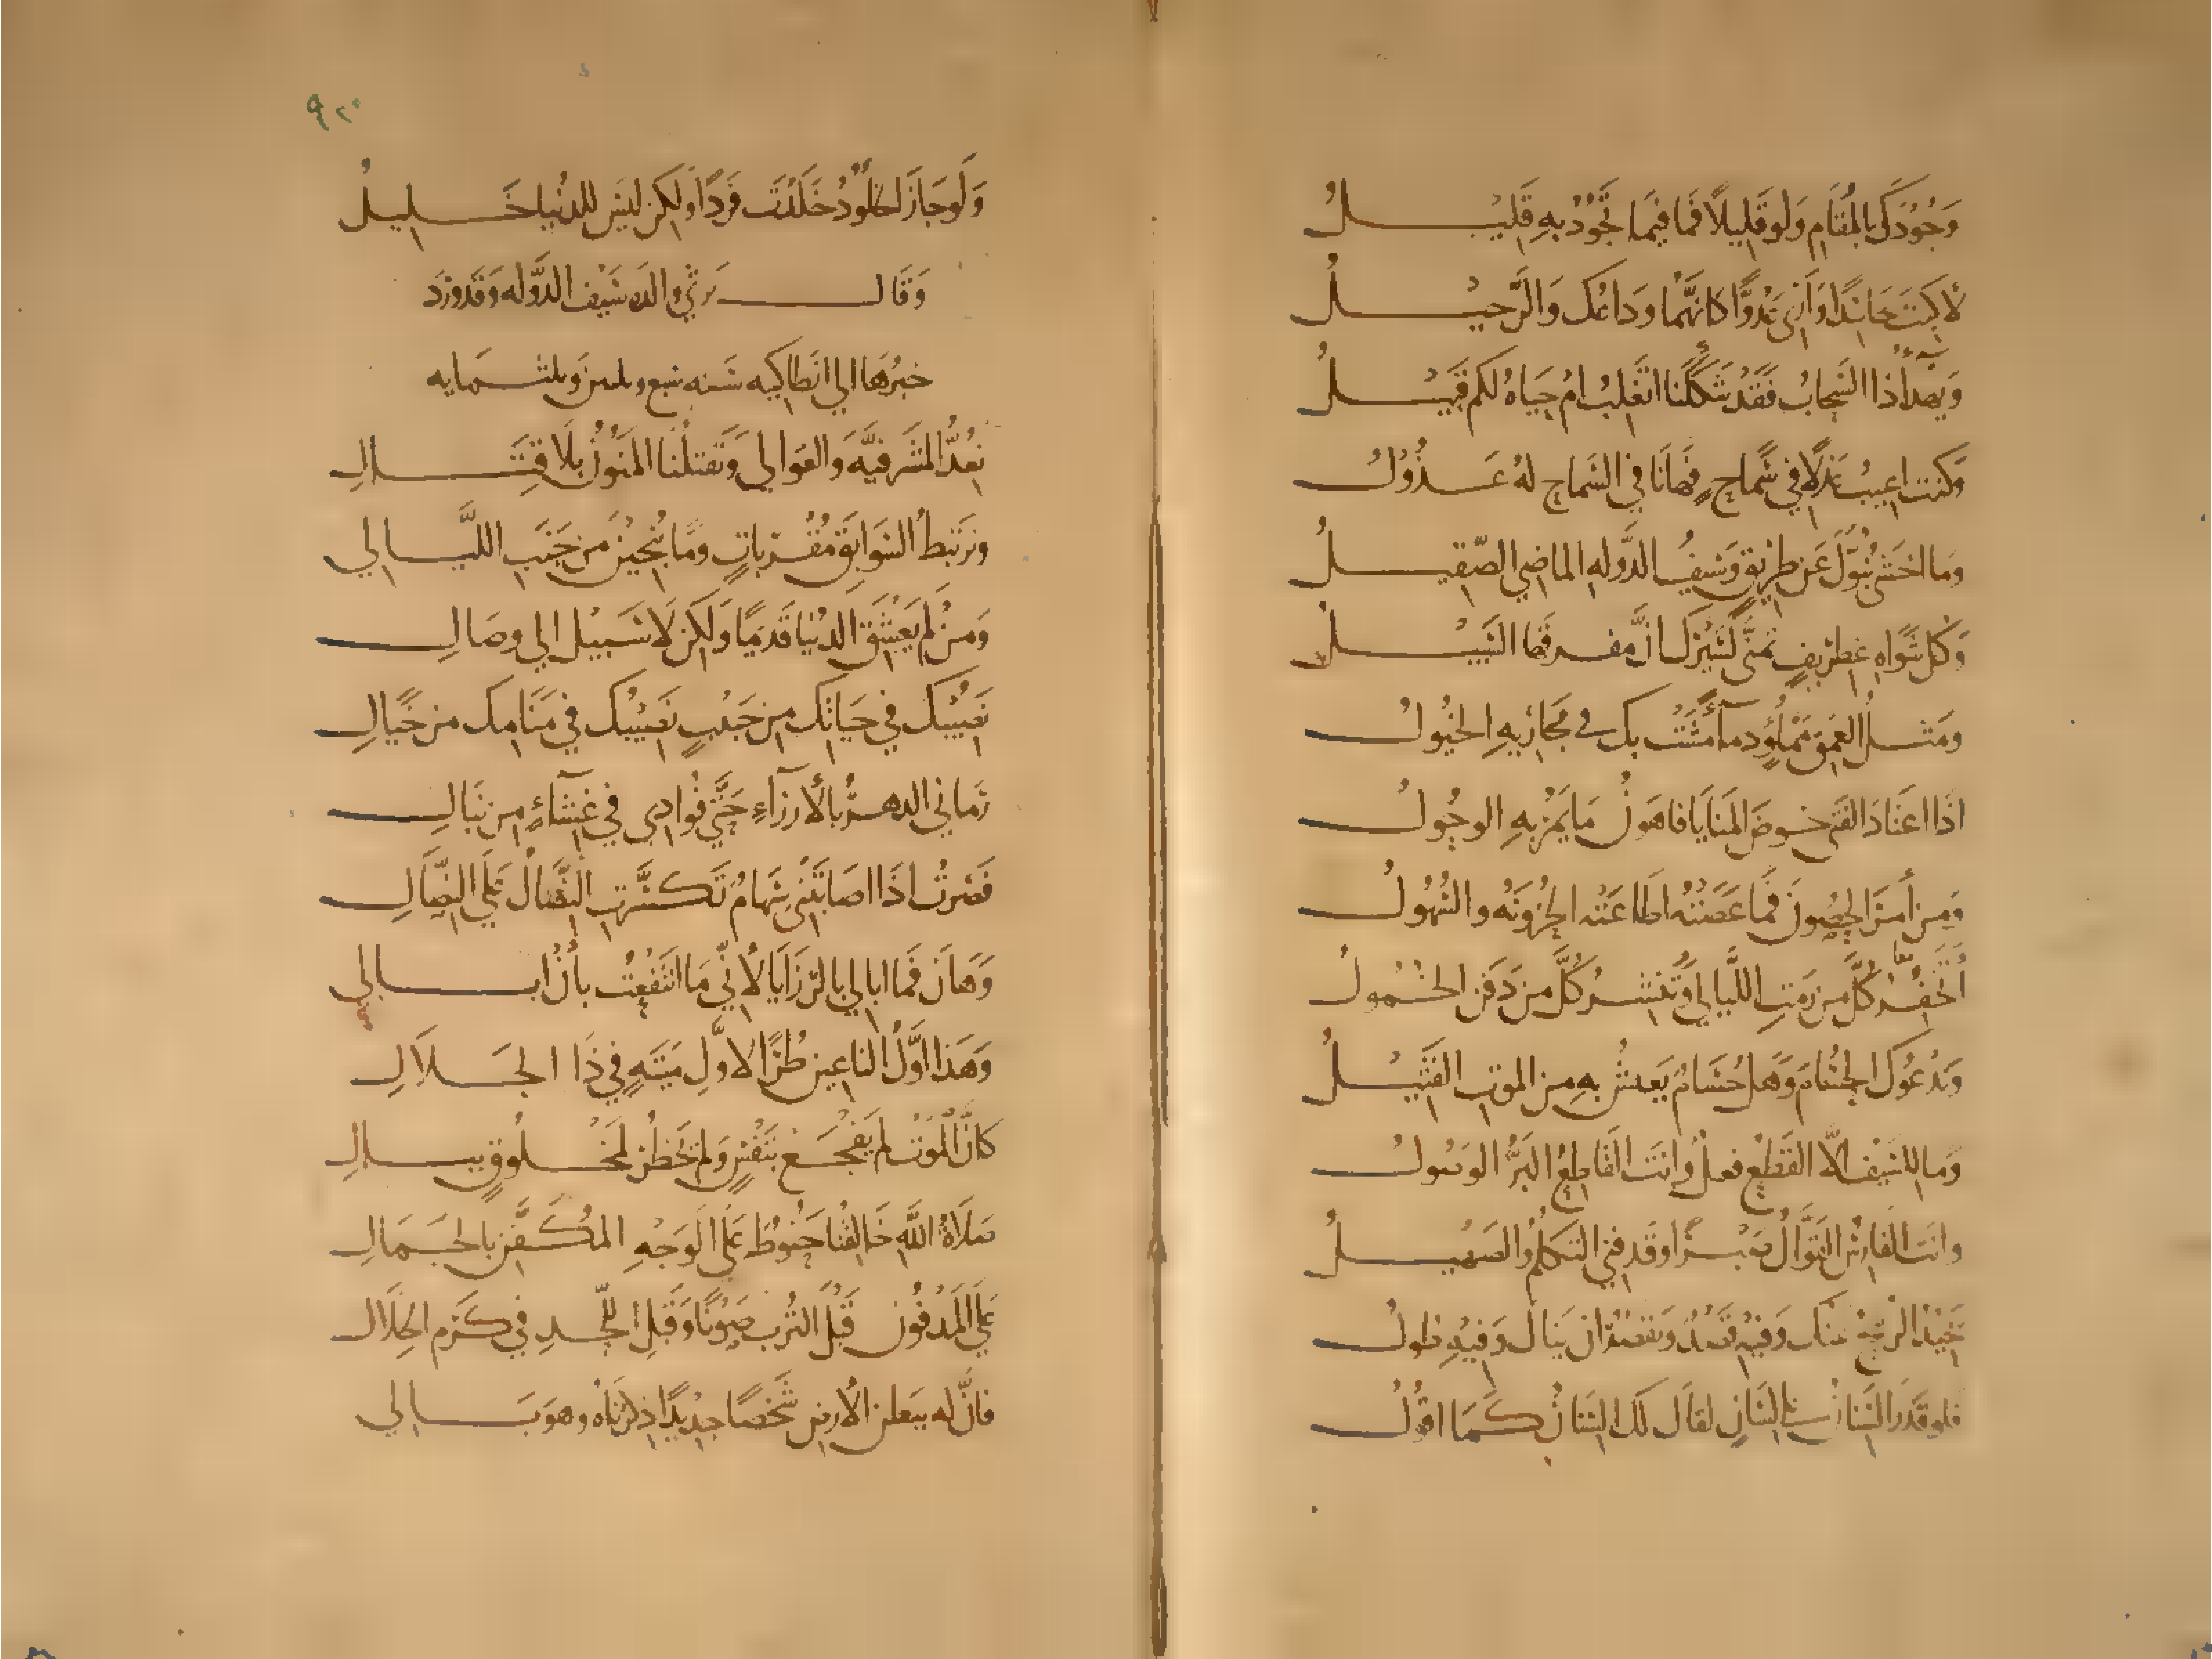 وَجُوْدَكَ بِالْمُقَامِ وَلَو قَلِيْلاً فَمَا فِيْمَا تَجُوْدُ بِهِ قَلِيْــلُ
لأكبتَ حَاسِدًا وَارى عَدُوًّا كَانَهُمَا وَدَاعُكَ وَالرَّحِيْــلُ
وَيهدأ ذا السَّحابُ فَقَدْ شَكَكْنا اتَغْلِبُ امْ حَيَاهُ لكم قَبِيْــلُ
وَكنت اعِيبُ عَذلًا فِي سَمَاحٍ فَهَانَا في السَّمَاحِ لهُ عَــذُوْلُ
وَمَا اخشَى نُبُوَّكَ عَن طرِيْقٍ وَسَيفُ الدَّوله الماضِي الصّقِيــلُ
وَكلُّ شَوَاهِ غِطْرِيفٍ تمَنَّى لسَيْرِكَ انَّ مفــرقهَا السَّبِيْــلُ
ومَثــلُ العَمْقِ مَمْلُوْءٍ دمآ مَشَتْ بك في مَجَارِيهِ الخيُولُ
اذَا اعتَادَ الفَتى خوضَ المنَايَا فاهوَنُ مَا يَمُرُّ بِهِ الوحُولُ
وَمن أمرَ الحصُونَ فَمَا عَصَتْهُ اطَاعَتْه الحُزُونَهُ والسُّهُولُ
أتَخْفِــرُ كُلَّ من رَمَتِ اللَّيالي وَتُنشــرُ كُلَّ مِن دَفَن الخُــمُولُ
وَندْعُوكَ الحُسَامَ وَهَل حُسَامُ يَعيشُ بِهِ مِن الموتِ القَتِيْــلُ
وَما للسّيفِ الاّ القَطْعَ فِعلُ وانتَ القَاطِعُ البَرُّ الوَصُولُ
وانتَ الفَارِسُ القَوَّالُ صَبْــرًا وقَد فني التكلمُ والصَهِيــلُ
يَحِيْدُ الرُّمحُ عنكَ وَفيْهِ قَصْدُ وَيَقصُرُ ان يَنالَ وَفيْهِ طُولُ
فلو قَدَرَ السِّنَانُ على لسَانٍ لقَالَ لكَ السِّنَانُ كَمَا اقُولُ
وَلَو جَازَ الخلُودُ خَلَدْتَ فَرْدًا وَلكن لَيسَ للدُنْيَا خَــلِيلُ
وَقَالــ يَرثي والدَه سَيْف الدَّوله وَقَد وَرَد
خبرُهَا الي انطَاكِيه سَنه سبع وثلثين وثلثــمايه
نُعِدُّ المَشرفيَّةَ وَالعَوَالِي وَتَقتُلُنَا المَنُوْنُ بِلَا قِتَــالِ
ونَرتَبِطُ السَوَابِقَ مُقْرَبَاتٍ وَمَا يُنْجِيْنَ مِن خَبَبِ اللَّيَــالِي
وَمن لَم يَعْشَقِ الدنْيَا قَدِيْمًا وَلكِن لَا سَبِيْل الى وِصَالِ
نَصِيْبُكَ في حَيَاتِكَ مِن حَبِيْبٍ نَصِيْبُكَ في مَنَامِكَ من خَيَالِ
رَماني الدهــرُ بالأرزَاءِ حَتَّى فُوَادِي في غِشَآءٍ من نِبَالِ
فَصْرتُ اذَا اصَابَتْنِي سِهَامُ تَكَسَّرَتِ النِّصَالُ عَلَى النِّصَالِ
وَهَانَ فَمَا ابالي بالرَّزَايَا لأَنّي مَا انْتَفَعْتُ بأَنْ ابــالي
وَهَذا اوَّلُ الناعِينَ طُرًّا لأوَّلِ مَيْتَةٍ في ذَا الجَــلَالِ
كانَّ المَوْتَ لَم يَفْجَــعْ بنَفْسٍ وَلم يَخطُرْ لِمَخْــلُوقٍ بِبَــالِ
صَلَاةُ اللّهِ خَالِقُنَا حَنُوطُ عَلَى الوَجْهِ المُكَــفَّنِ بالجَــمَالِ
عَلَى المَدْفُونِ قَبْلَ التُّربِ صَوْنًا وَقَبْلِ اللّحْــدِ فِي كَــرَمِ الخِلَالِ
فانَّ له بِبَطنِ الأرضِ شَخْصًا جدِيْدًا ذِكْرُنَاهُ وهوَ بَــالي